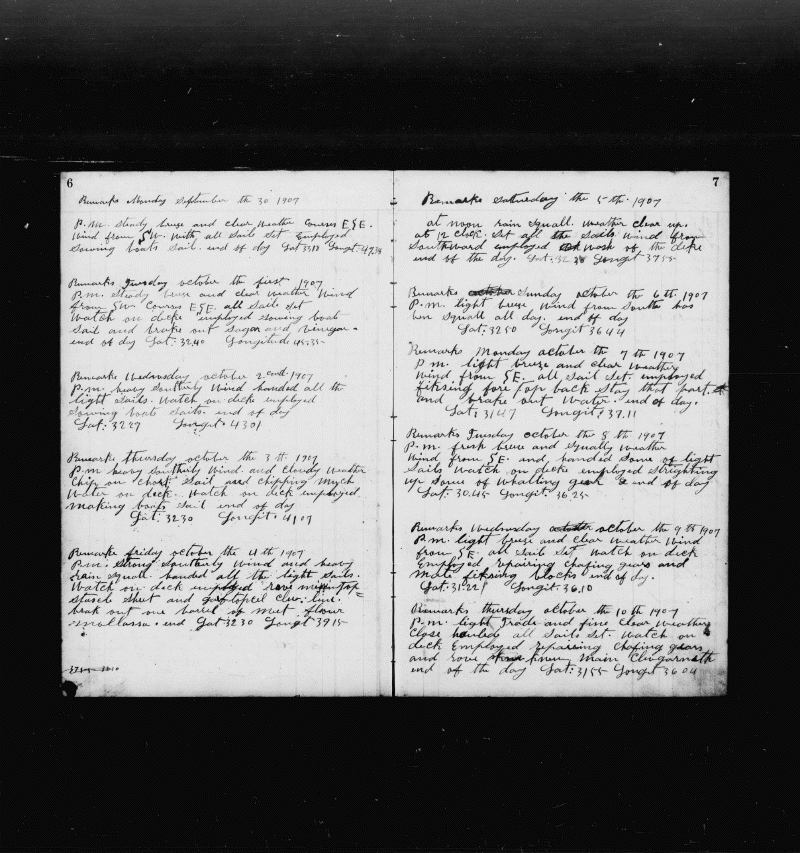 6
Remarks Monday September th 30 1907
P.m. steady breeze and clear weather courses E S E.
wind from SW. with all sail set Employed
sowing boats sail. end of day Lat 3318 Longit 4734
Remarks tuesday october the first 1907
P.m. steady breeze and clear weather wind
from SW Courses E S E. all sails set
watch on decke employed sowing boat
sail and brake out sugar and vinegar.
end of day Lat: 32.40 Longitude 45:35
Remarks Wednesday october 2 1907
P.m. heavy southerly wind handed all the
light sails. Watch on decke employed
sowing boats sails. end of day
Lat: 3227 Longit. 4301
Remarks thursday october the 3 th. 1907
P.m. heavy southerly wind. and cloudy weather
Chip on chort sail and chipping much
water on deck. watch on deck employed.
making boats sail end of day
Lat: 3230 Longit. 4107
Remarks friday october the 4th 1907
P.m. strong southerly wind and heavy
rain squall handed all the light sails.
Watch on deck employed rove
sheet and
brak out one barrel of meet flour
mollassa. end Lat 3230 Longit 3915
7
Remarks saturday the 5 th. 1907
at noon rain squall. weather clear up.
at 12 clock. set all the sails wind from
southward employed wash of the decke
end of the day. Lat: 32 Longit 3755
Remarks Sunday october the 6th 1907
P.m. light breeze wind from souths has
ben squall all day. end of day
Lat: 3250 Longit 3644
Remarks Monday october th 7th 1907
P.m. light breeze and clear weather
wind from SE. all sail set. employed
fiksing fore top back stay that part
and brake out water. end of day.
Lat: 3147 Longit: 37.11
Remarks Tuesday october the 8th 1907
P.m. fresh breeze and squally weather
wind from SE. and handed some of light
sails watch on decke employed strighting
up some of whalling gear end of day
Lat: 30.45 Longit: 36.25
Remarks wednesday october the 9th 1907
P.m. light breeze and clear weather wind
from SE. all sail set watch on deck
Employed repairing chafing gears and
make fiksing blocks end of day.
Lat: 31.22 Longit: 36.10
Remarks thursday october the 10th 1907
P.m. light trade and fine clear weather
close hauled all sails set. watch on
deck Employed repairing chafing gears
and rove new main
end of the day Lat: 3155 Longit 3604